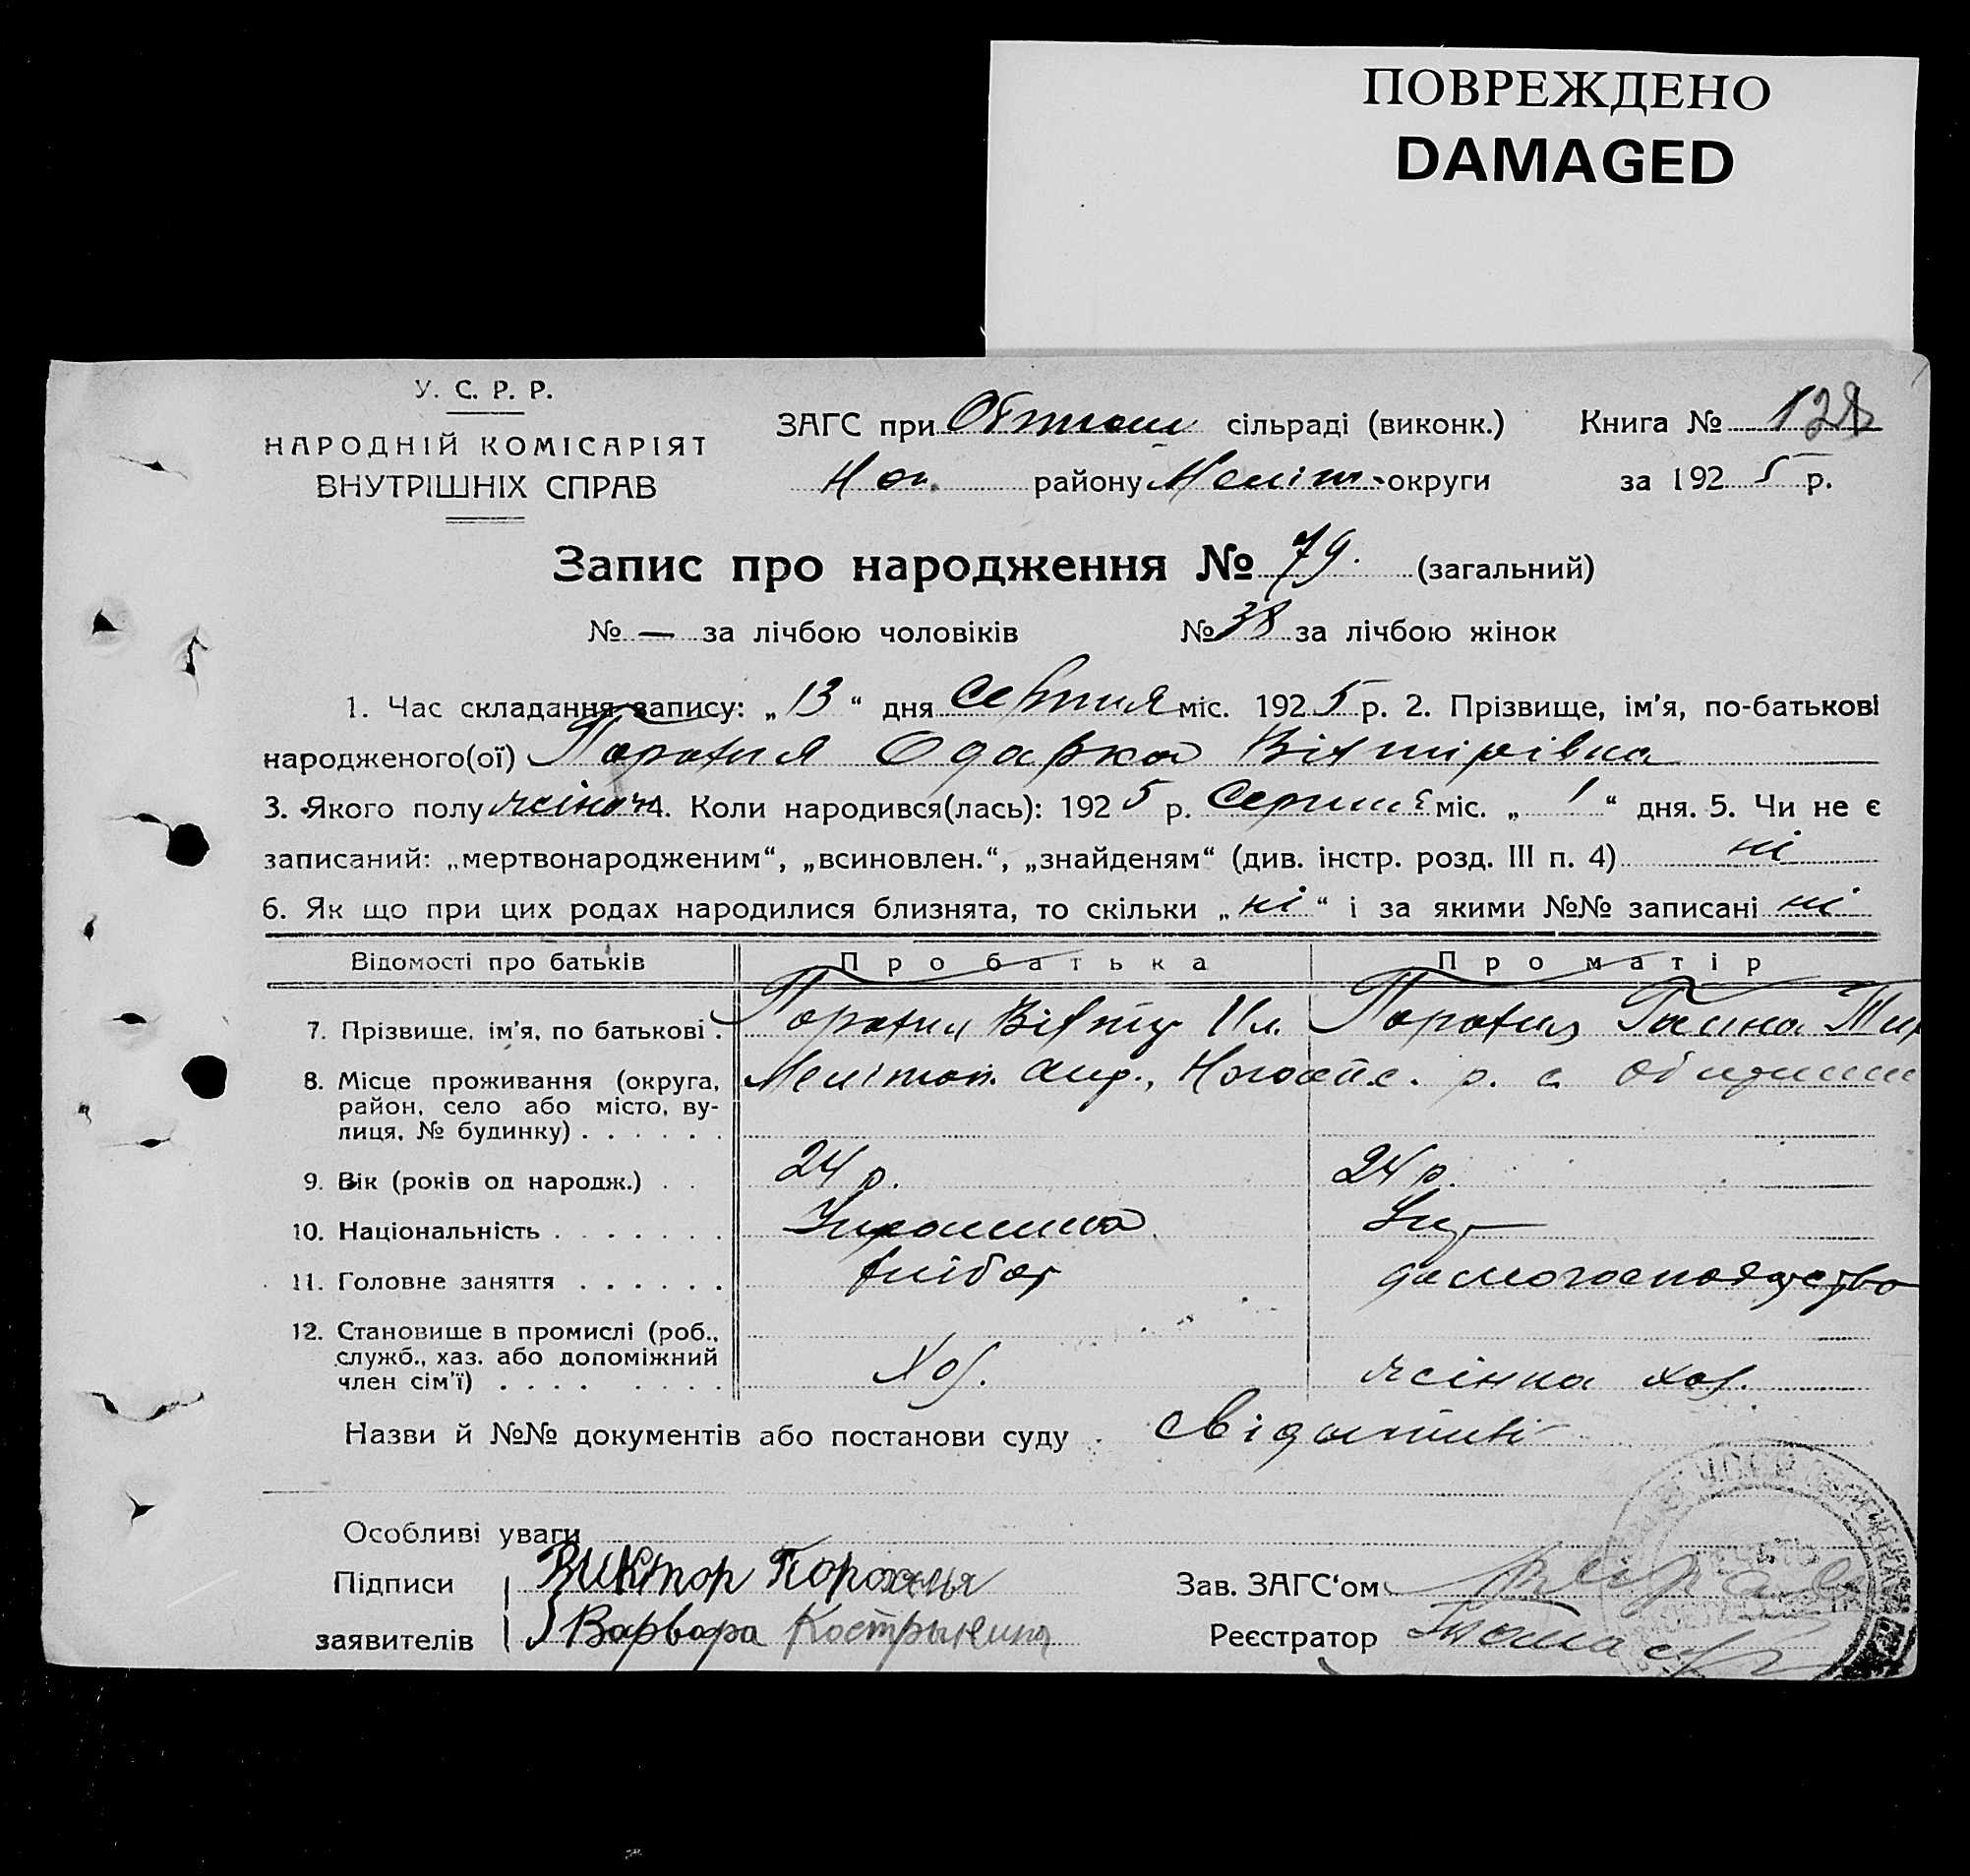 ПОВРЕЖДЕНО
DAMAGED
У. С. Р. Р.
НАРОДНІЙ КОМІСАРІЯТ
ВНУТРІШНІХ СПРАВ
ЗАГС при сільраді (виконк.) Книга №
району Меліт. округи за 1925 р.
Запис про народження № 79. (загальний)
№ — за лічбою чоловіків № 38 за лічбою жінок
1. Час складання запису: „13“ дня Серпня міс. 1925 р. 2. Прізвище, ім'я, по-батькові
народженого(ої) Одарка Вікторівна
3. Якого полу жіноч. 4. Коли народився(лась): 1925 р. Серпня міс. „1“ дня. 5. Чи не є
записаний: „мертвонародженим“, „всиновлен.“, „знайденям“ (див. інстр. розд. III п. 4) ні
6. Як що при цих родах народилися близнята, то скільки „ні“ і за якими №№ записані ні
Відомості про батьків Про батька Про матір
7. Прізвище, ім'я, по батькові . Віктор Ганна
8. Місце проживання (округа,
район, село або місто, ву-
лиця, № будинку) . . . . . . Мелітоп. окр., р. с.
9. Вік (років од народж.) . . 24 р. 24 р.
10. Національність . . . . . . . Українець Укр
11. Головне заняття . . . . . . хлібор домогосподарство
12. Становище в промислі (роб.,
служб., хаз. або допоміжний
член сім'ї) . . . . . . . . Хоз. жінка хоз.
Назви й №№ документів або постанови суду
Особливі уваги
Підписи Виктор Порохня Зав. ЗАГС'ом
заявителів Варвара Реєстратор